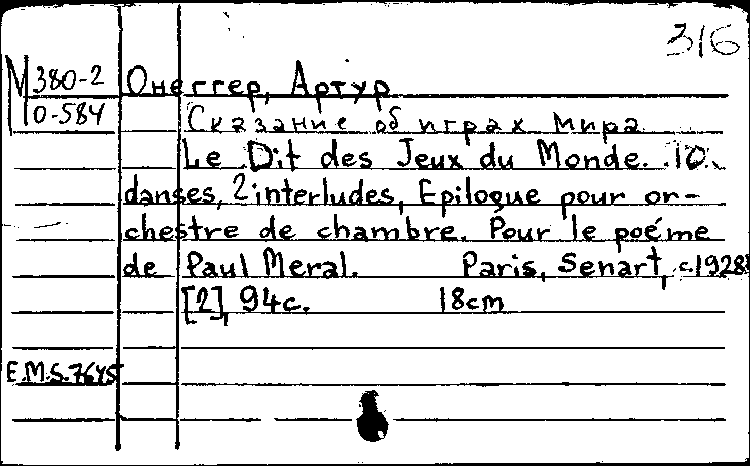 316
М 380-2 Онеггер, Артур
0-584 Сказание об играх мира
Le Dit des Jeux du Monde. 10
danses, 2 interludes, Epilogue pour or-
chestre de chambre. Pour le poéme
de Paul Meral. Paris, Senart, c.1928
[2], 94с. 18см
E.M.S.7645